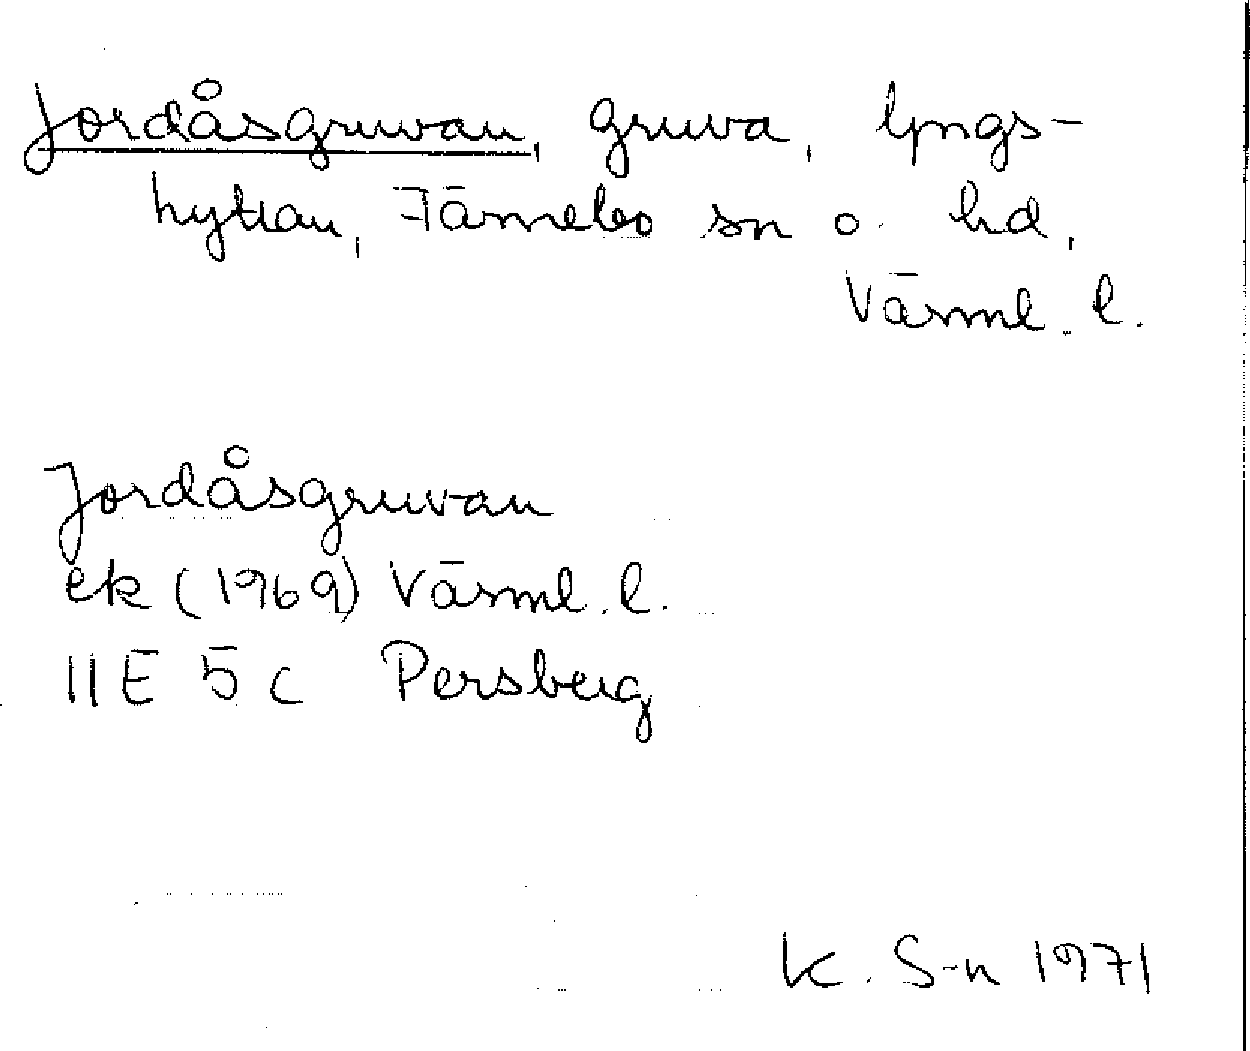 Jordåsgruvan, gruva, Lyngs-
hyttan, Färnebo sn o. hd,
Värml. l.
Jordåsgruvan
ek (1969) Värml. l.
11E 5c Persberg
K. S-n 1971